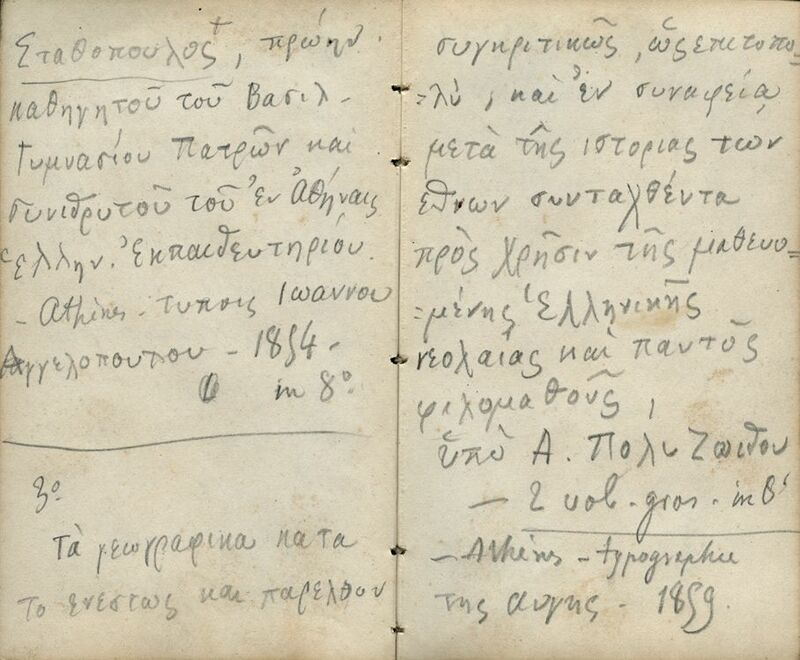 Σταθοπουλος+, πρώην
καθηγητοῦ τοῦ Βασιλ-
Γυμνασίου Πατρῶν καὶ
συνιδρυτοῦ τοῦ ἐν Ἀθήναις
Ἑλλην. Ἐκπαιδευτηρίου.
- Athènes - τυποις Ιωαννου
Αγγελοπουλου - 1854 -
in 8º.
3º
Τὰ γεωγραφικα κατα
το ενεστως και παρελθον
συγκριτικῶς, ὡς επιτοπο=
=λὺ, καὶ ἐν συναφείᾳ
μετὰ τῆς ιστοριας των
εθνων συνταχθέντα
πρὸς χρῆσιν τῆς μαθευο=
=μένης Ἑλληνικῆς
νεολαίας καὶ παντὸς
φιλομαθοῦς,
ὑπὸ Α. Πολυζωιδου
— 2 vol. gros. in 8º
— Athènes - typographie
της αυγης - 1859.